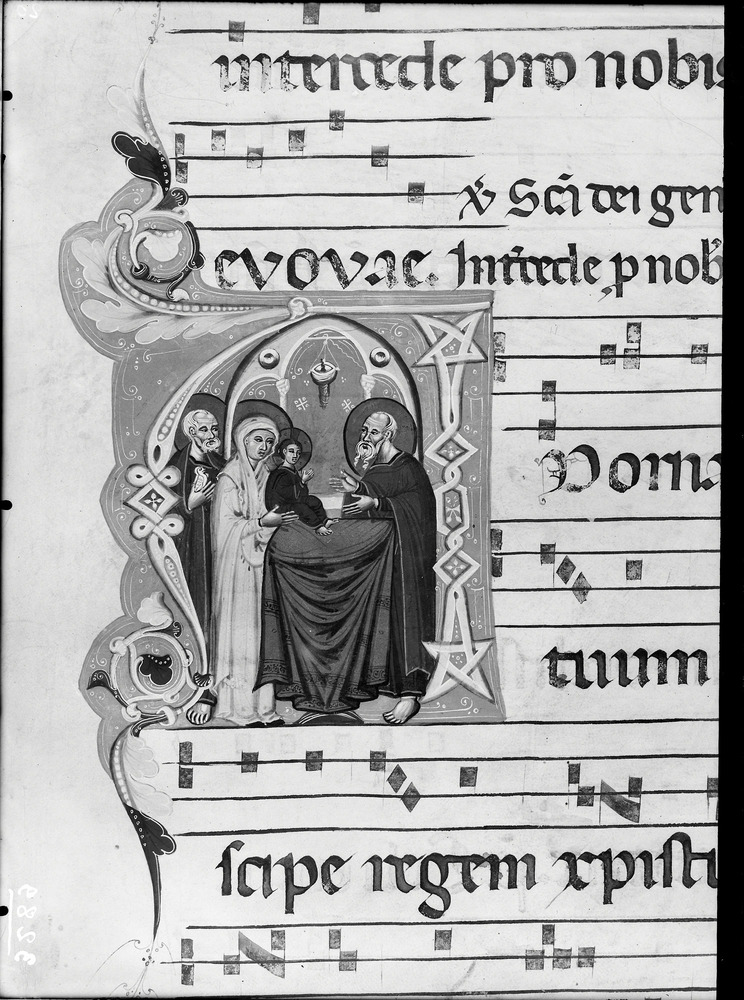 intercede pro nobis
℣ Sc̄i dei gen
evovae. Int̄cede p nob̄
Dorna
tuum
scipe regem xpistu
3289